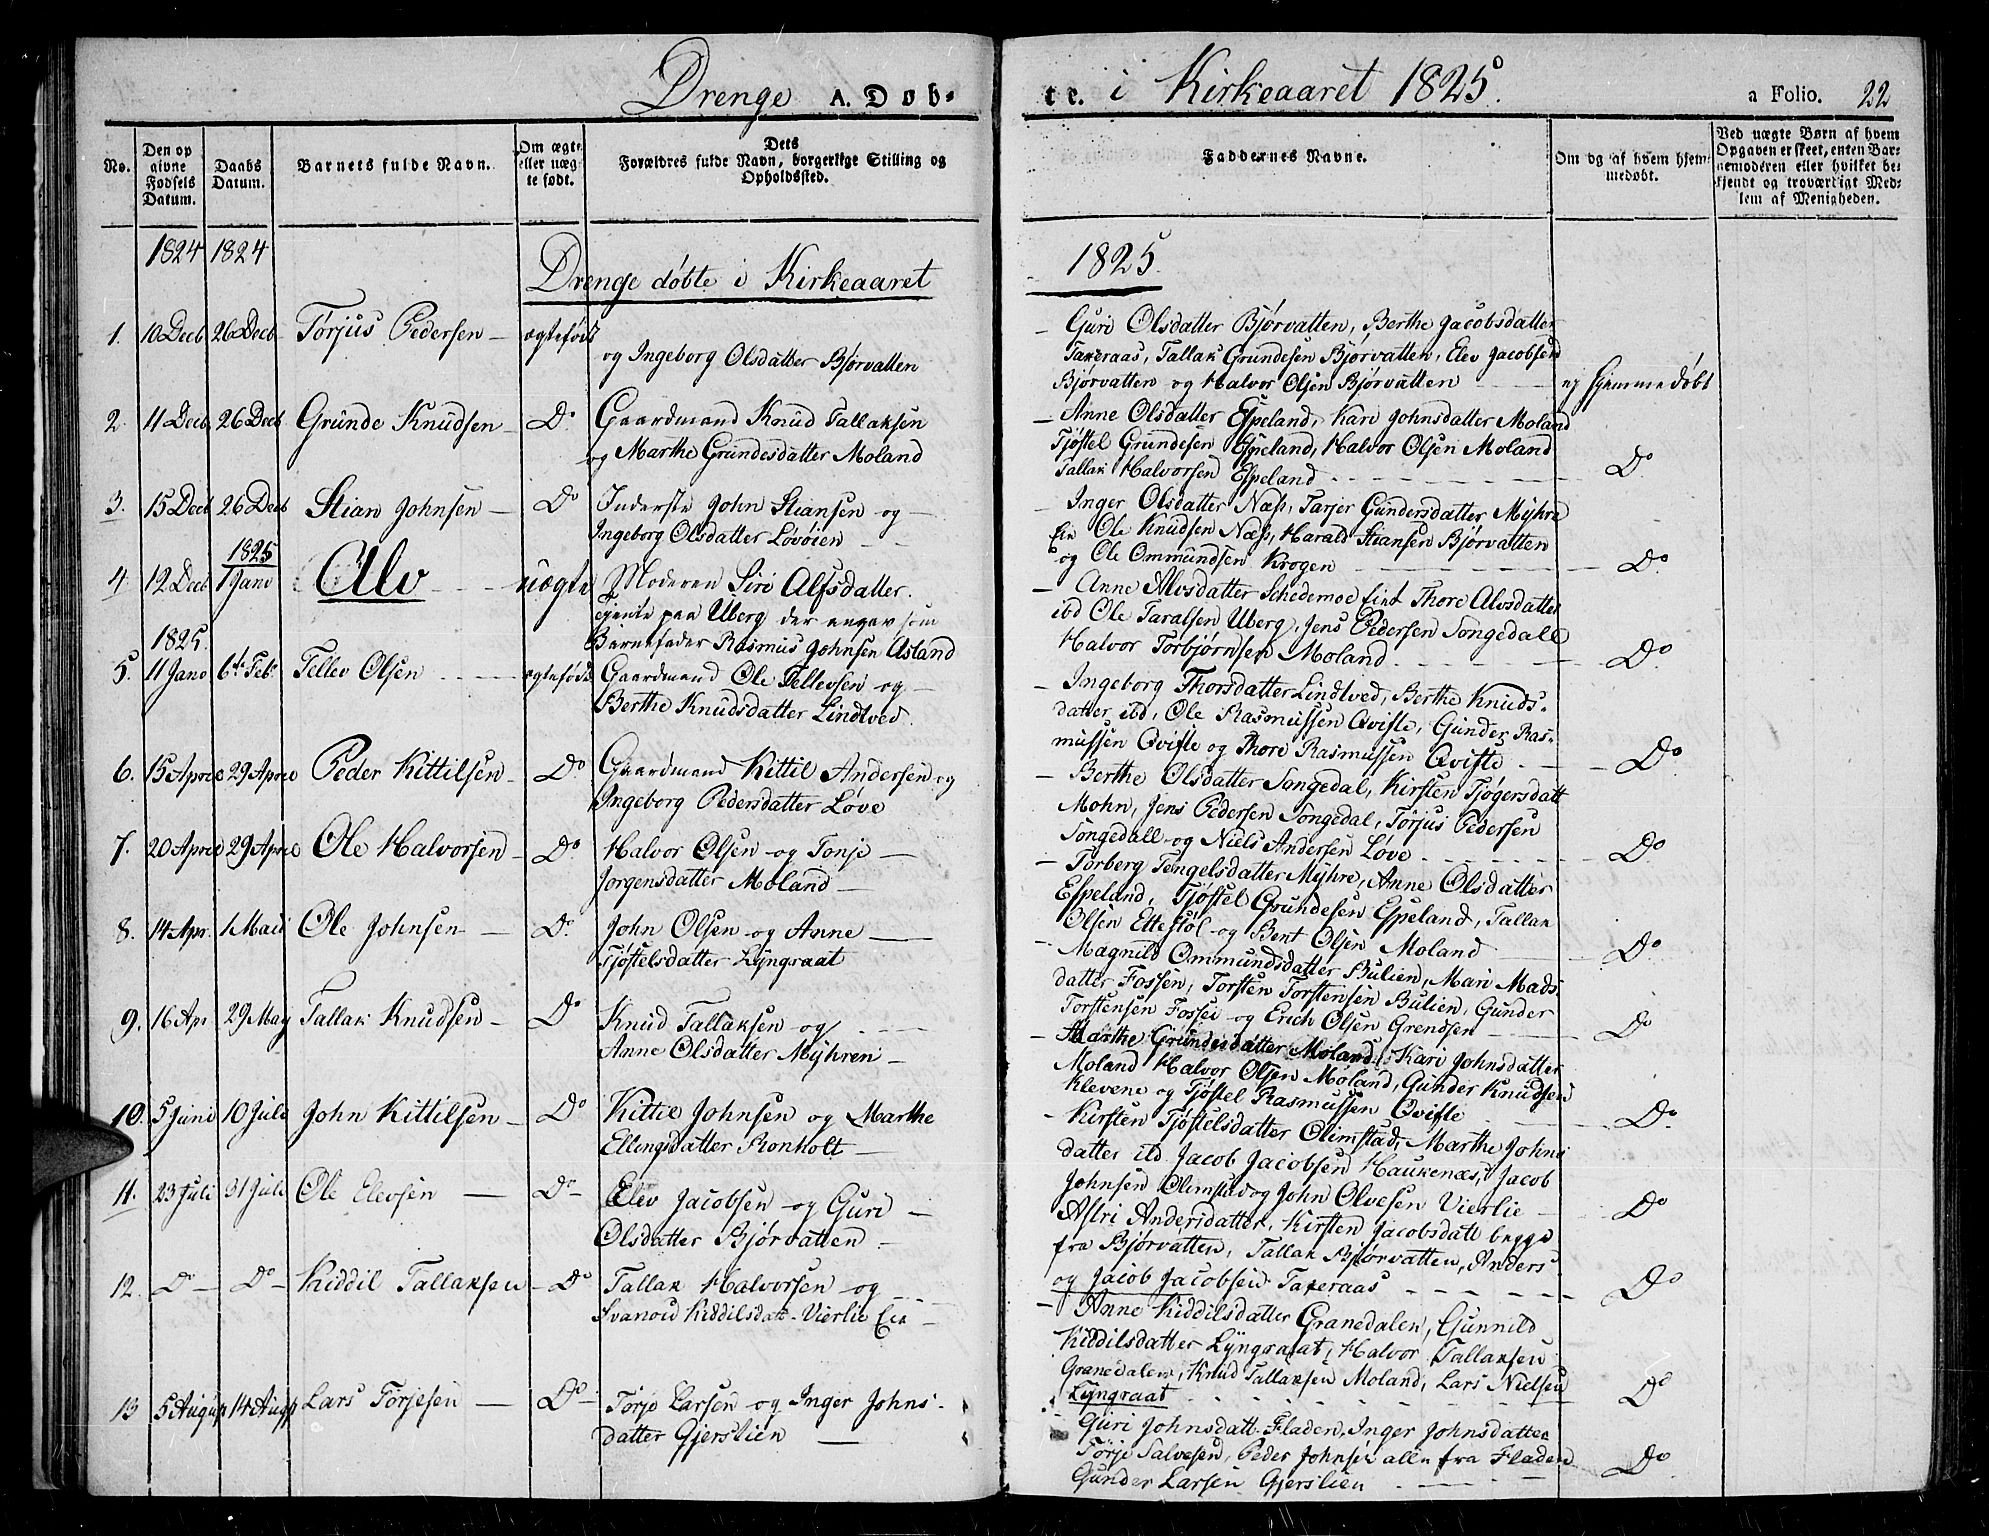 Drenge A. Døb-
te. i Kirkeaaret 1825. a Folio. 22
No.
Den op
givne
Fødsels
Datum.
Daabs
Datum.
Barnets fulde Navn.
Om ægte
eller uæg-
te født.
Dets
Forældres fulde Navn, borgerlige Stilling og
Opholdssted.
Faddernes Navne.
Om og af hvem hjem-
medøbt.
Ved uægte Børn af hvem
Opgaven er skeet, enten Bar-
nemoderen eller hvilket be-
kjendt og troværdigt Med-
lem af Menigheden.
1824 1824
Drenge døbte i Kirkeaaret
1825.
1. 10 Decb 26 Decb Torjus Pedersen ægtefød
og Ingeborg Olsdatter Bjørvatten
Guri Olsdatter Bjørvatten, Berthe Jacobsdatter
Taxeraas, Tallak Grundesen Bjørvatten, Elev Jacobsen
Bjørvatten og Halvor Olsen Bjørvatten ej hjemmedøbt
2. 11 Decb 26 Decb Grunde Knudsen Do Gaardmand Knud Tallaksen
og Marthe Grundesdatter Moland
Anne Olsdatter Espeland, Kari Johnsdatter Moland
Tjøstel Grundesen Espeland, Halvor Olsen Moland
Tallak Halvorsen Espeland Do
3. 15 Decb 26 Decb Stian Johnsen Do Inderste John Stiansen og
Ingeborg Olsdatter Løvøien
Inger Olsdatter Næs, Tarjer Gundersdatter Myhre
Eie Ole Knudsen Næs, Harald Stiansen Bjørvatten
og Ole Ommundsen Krogen Do
1825
4. 12 Decb 1 Janv Alv uægte Moderen Siri Alfsdatter
tjente paa Uberg der angav som
Barnefader Rasmus Johnsen Asland
Anne Alvsdatter Schedemoe Eiet Thore Alvsdatter
ibd Ole Taralsen Uberg, Jens Pedersen Songedall
Halvor Torbjørnsen Moland Do
1825.
5. 11 Janv 6te Feb. Tellev Olsen ægtefød Gaardmand Ole Tellevsen og
Berthe Knudsdatter Lindtved.
Ingeborg Thorsdatter Lindtved, Berthe Knuds-
datter ibd, Ole Rasmussen Qviste, Gunder Ras-
mussen Qviste og Thore Rasmussen Qviste Do
6. 15 April 29 April Peder Kittilsen Do Gaardmand Kittil Andersen og
Ingeborg Pedersdatter Løve
Berthe Olsdatter Songedal, Kirsten Tjøgersdatt
Mohn, Jens Pedersen Songedal, Torjus Pedersen
Songedall og Niels Andersen Løve Do
7. 20 April 29 April Ole Halvorsen Do Halvor Olsen og Tonje
Jorgensdatter Moland
Torberg Tengelsdatter Myhre, Anne Olsdatter
Espeland, Tjøstel Grundesen Espeland, Tallak
Olsen Ettestøl og Bent Olsen Moland Do
8. 14 Apr. 1 Maii Ole Johnsen Do John Olsen og Anne
Tjøstelsdatter Lyngraat
Magnild Ommundsdatter Bulien, Mari Mads
datter Fossen, Torsten Torstensen Bulien, Gunder
Torstensen Fossei og Erich Olsen Grendsen Do
9. 16 Ap 29 May Tallak Knudsen Do Knud Tallaksen og
Anne Olsdatter Myhren
Marthe Grundesdatter Moland, Kari Johnsdatter
Moland Halvor Olsen Moland, Gunder Knudsen
Klevene og Tjøstel Rasmussen Qviste Do
10. 5 Juni 10 Juli John Kittilsen Do Kittil Johnsen og Marthe
Ellingsdatter Ronholt
Kirsten Tjøstelsdatter Olimstad, Marthe Johns
datter ibd Jacob Jacobsen Haukenæs, Jacob
Johnsen Olimstad og John Olvesen Vierlie Do
11. 23 Juli 31 Juli Ole Elevsen Do Elev Jacobsen og Guri
Olsdatter Bjørvatten
Astri Andersdatter, Kirsten Jacobsdatt begge
fra Bjørvatten, Tallak Bjørvatten, Anders
og Jacob Jacobsen Taxeraas Do
12. Do Do Kiddil Tallaksen Do Tallak Halvorsen og
Svanoud Kiddilsdatt. Vierlie Eie
Anne Kiddilsdatter Granedalen, Gunnild
Kiddilsdatter Lyngraat, Halvor Tallaksen
Granedalen, Knud Tallaksen Moland, Lars Nielsen
Lyngraat Do
13 5 August 14 Augs Lars Torjesen Do Torje Larsen og Inger Johns-
datter Gjerslien
Guri Johnsdatt. Fladen, Inger Johnsdatter
Torje Salvesen, Peder Johnsen alle fra Fladen
Gunder Larsen Gjerslien Do